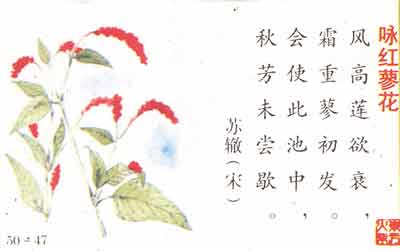 咏红蓼花
风高莲欲衰，
霜重蓼初发。
会使此池中，
秋芳未尝歇。
苏辙（宋）
50-47